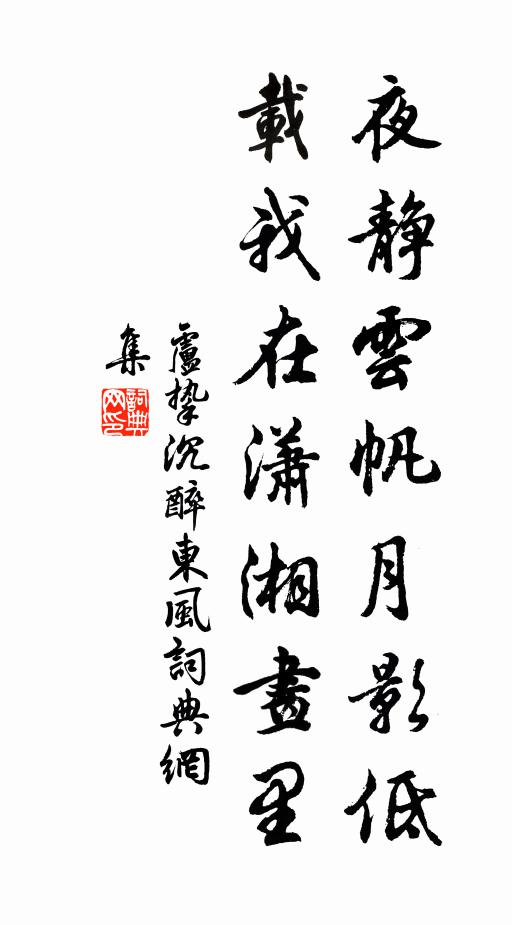 夜静雲帆月影低
載我在瀟湘畫里
盧摯沉醉東風詞典網
集
詞典網印